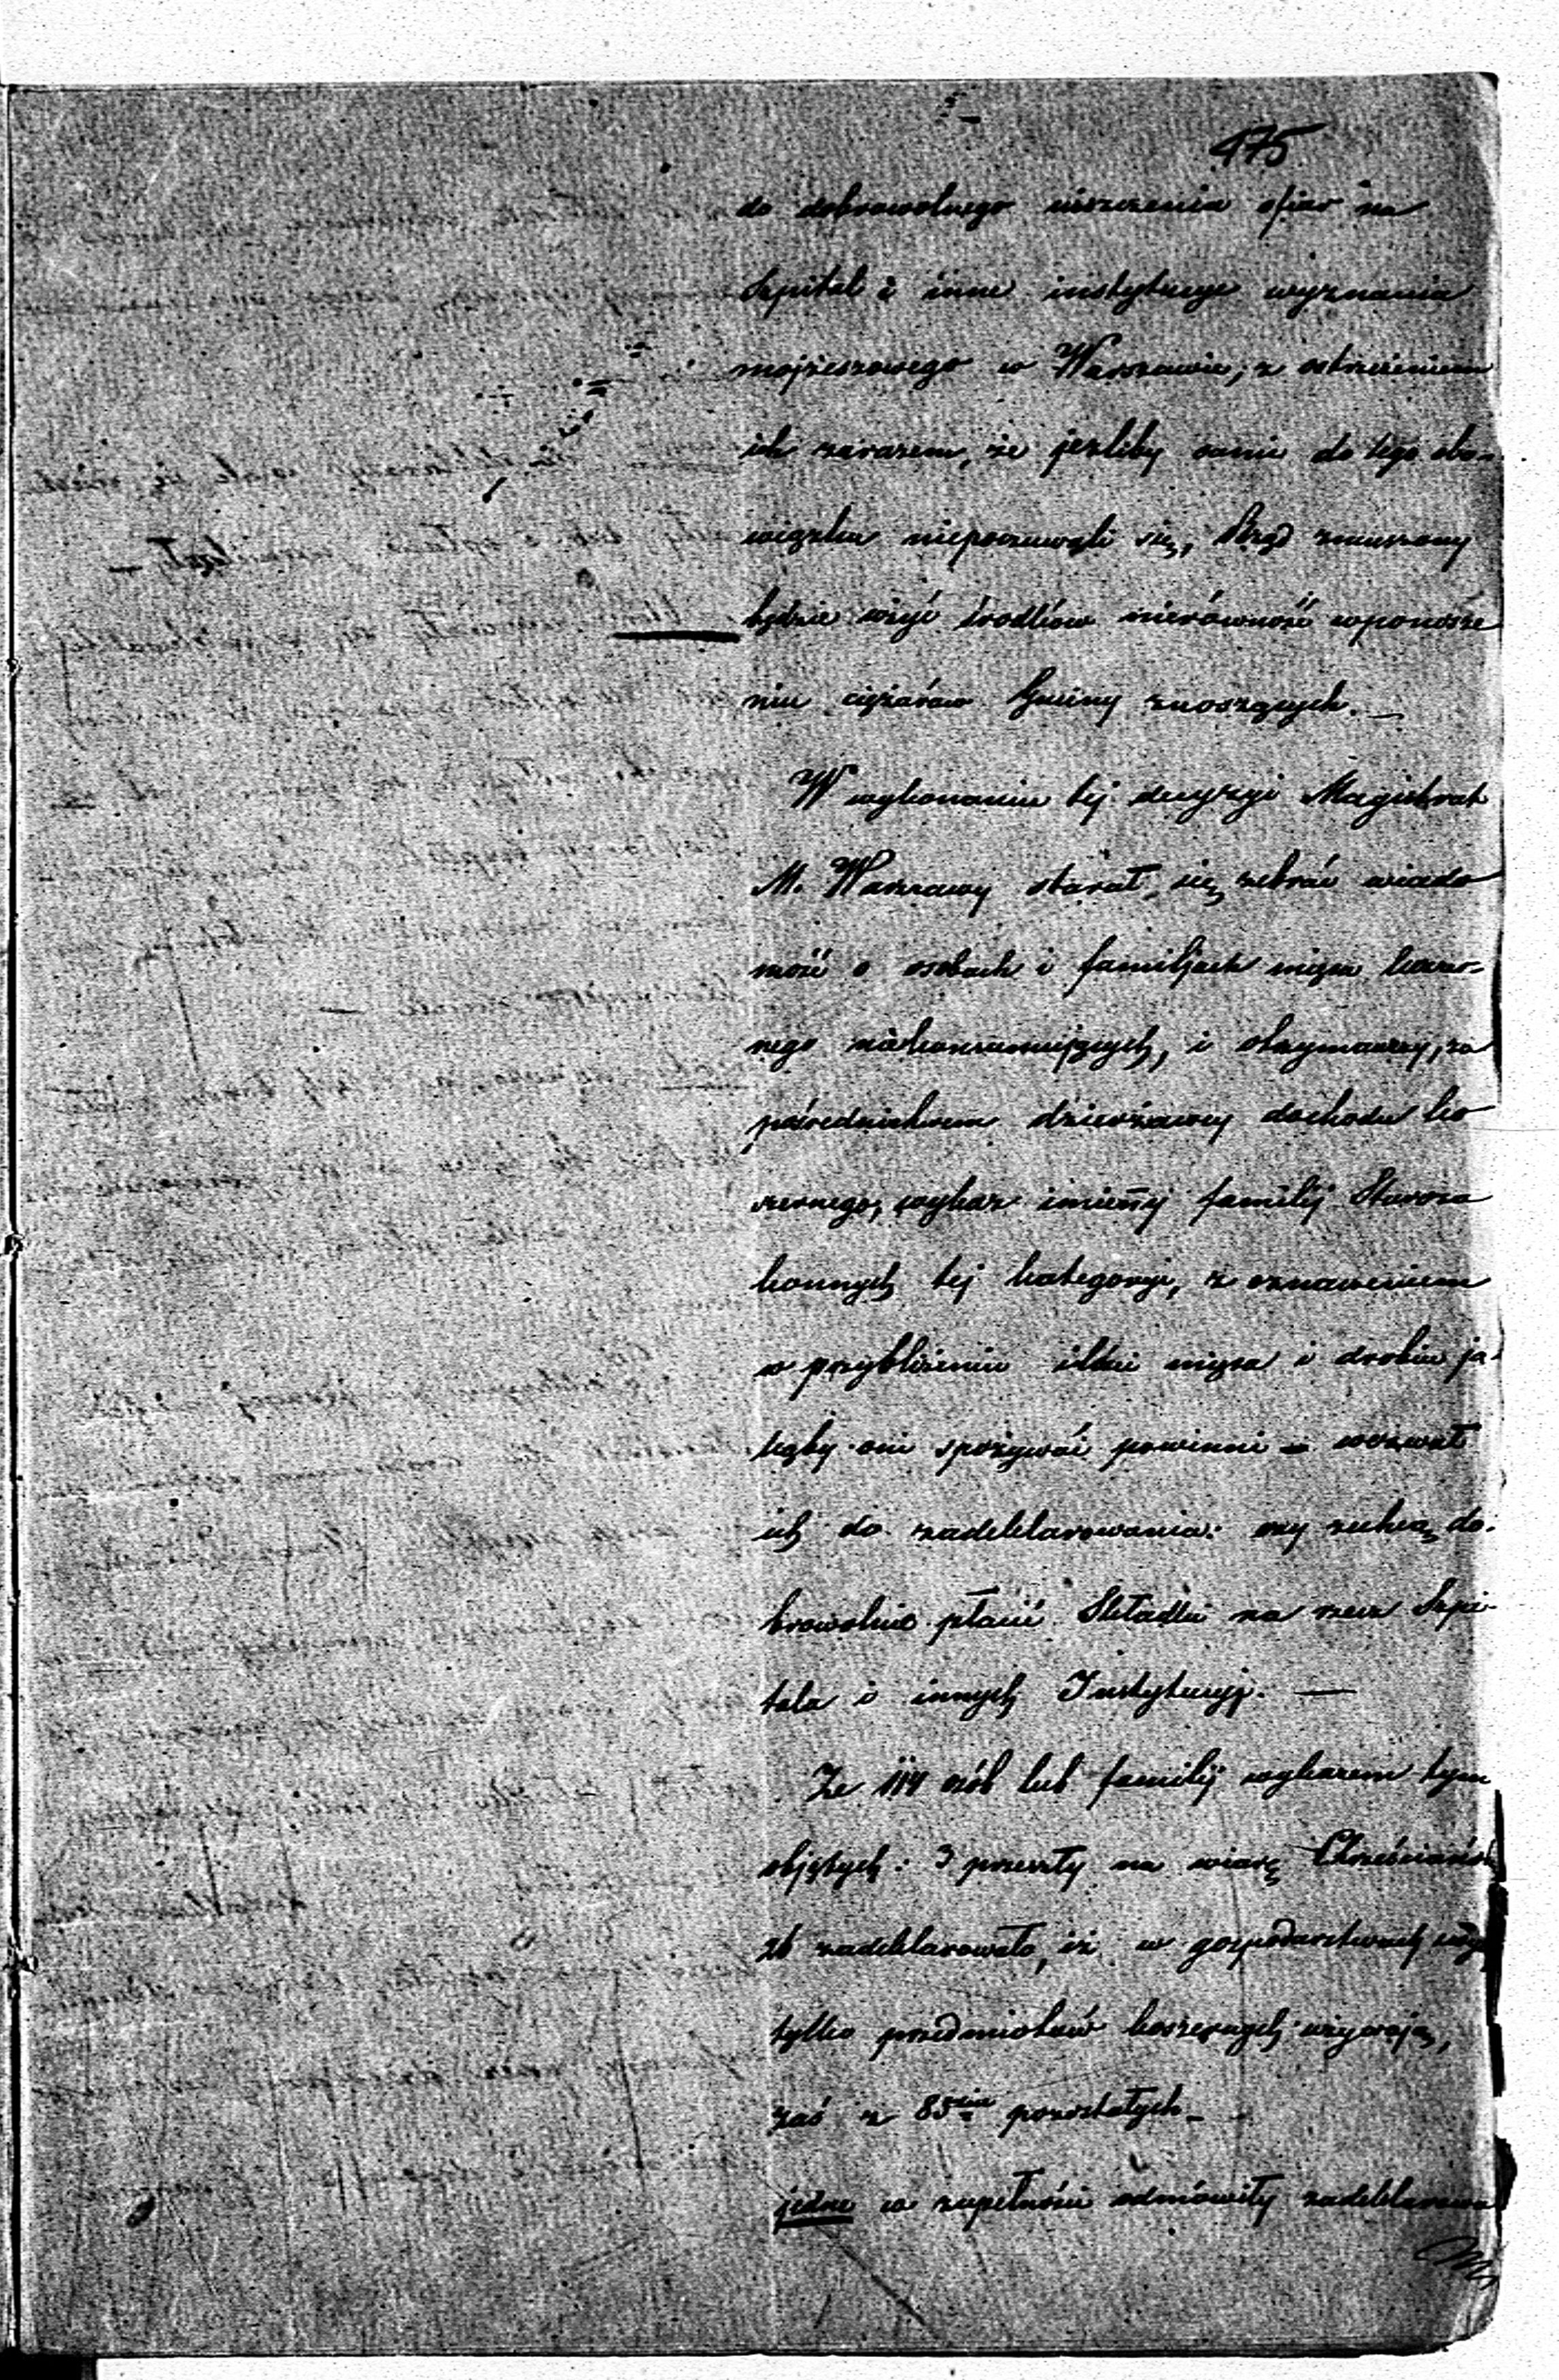 475
do dobrowolnego uiszczenia ofiar na
Szpital i inne instytucye wyznania
mojżeszowego w Warszawie, z ostrzeżeniem
ich zarazem, że jeżliby sami do tego obo-
wiązku niepoczuwali się, Rząd zmuszony
będzie użyć środków nierówność w ponosze
niu ciężarów Gminy znoszących. —
W wykonaniu tej decyzyi Magistrat
M. Warszawy starał się zebrać wiado
mość o osobach i familjach mięsa kosze-
rnego niekonsumujących, i otrzymawszy, za
pośrednictwem dzierżawcy dochodu ko
szernego, wykaz imieny familij Staroza
konnych tej kategoryi, z oznaczeniem
w przybliżeniu ilości mięsa i drobiu ja-
kąby oni spożywać powinni – wezwał
ich do zadeklarowania: czy zechcą do-
browolnie płacić Składki na rzecz Szpi-
tala i innych Instytucyj. —
Ze 114 osób lub familij wykazem tym
objętych: 3 przeszły na wiarę Chrześciańsk
26 zadeklarowało, iż w gospodarstwach
tylko przedmiotów koszernych używają,
zaś z 85ciu pozostałych –
jedne w zupełności odmówiły zadeklarowa